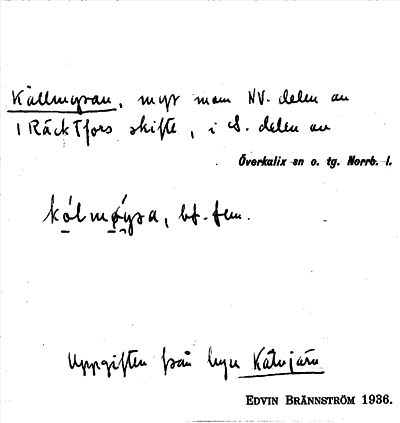 Källmyran, myr inom NV. delen av
1 Räcktfors skifte, i S. delen av
Överkalix sn o. tg. Norrb. l.
kólmǿysa, bf. fem.
Uppgiften från byn Kätvjärn
EDVIN BRÄNNSTRÖM 1936.